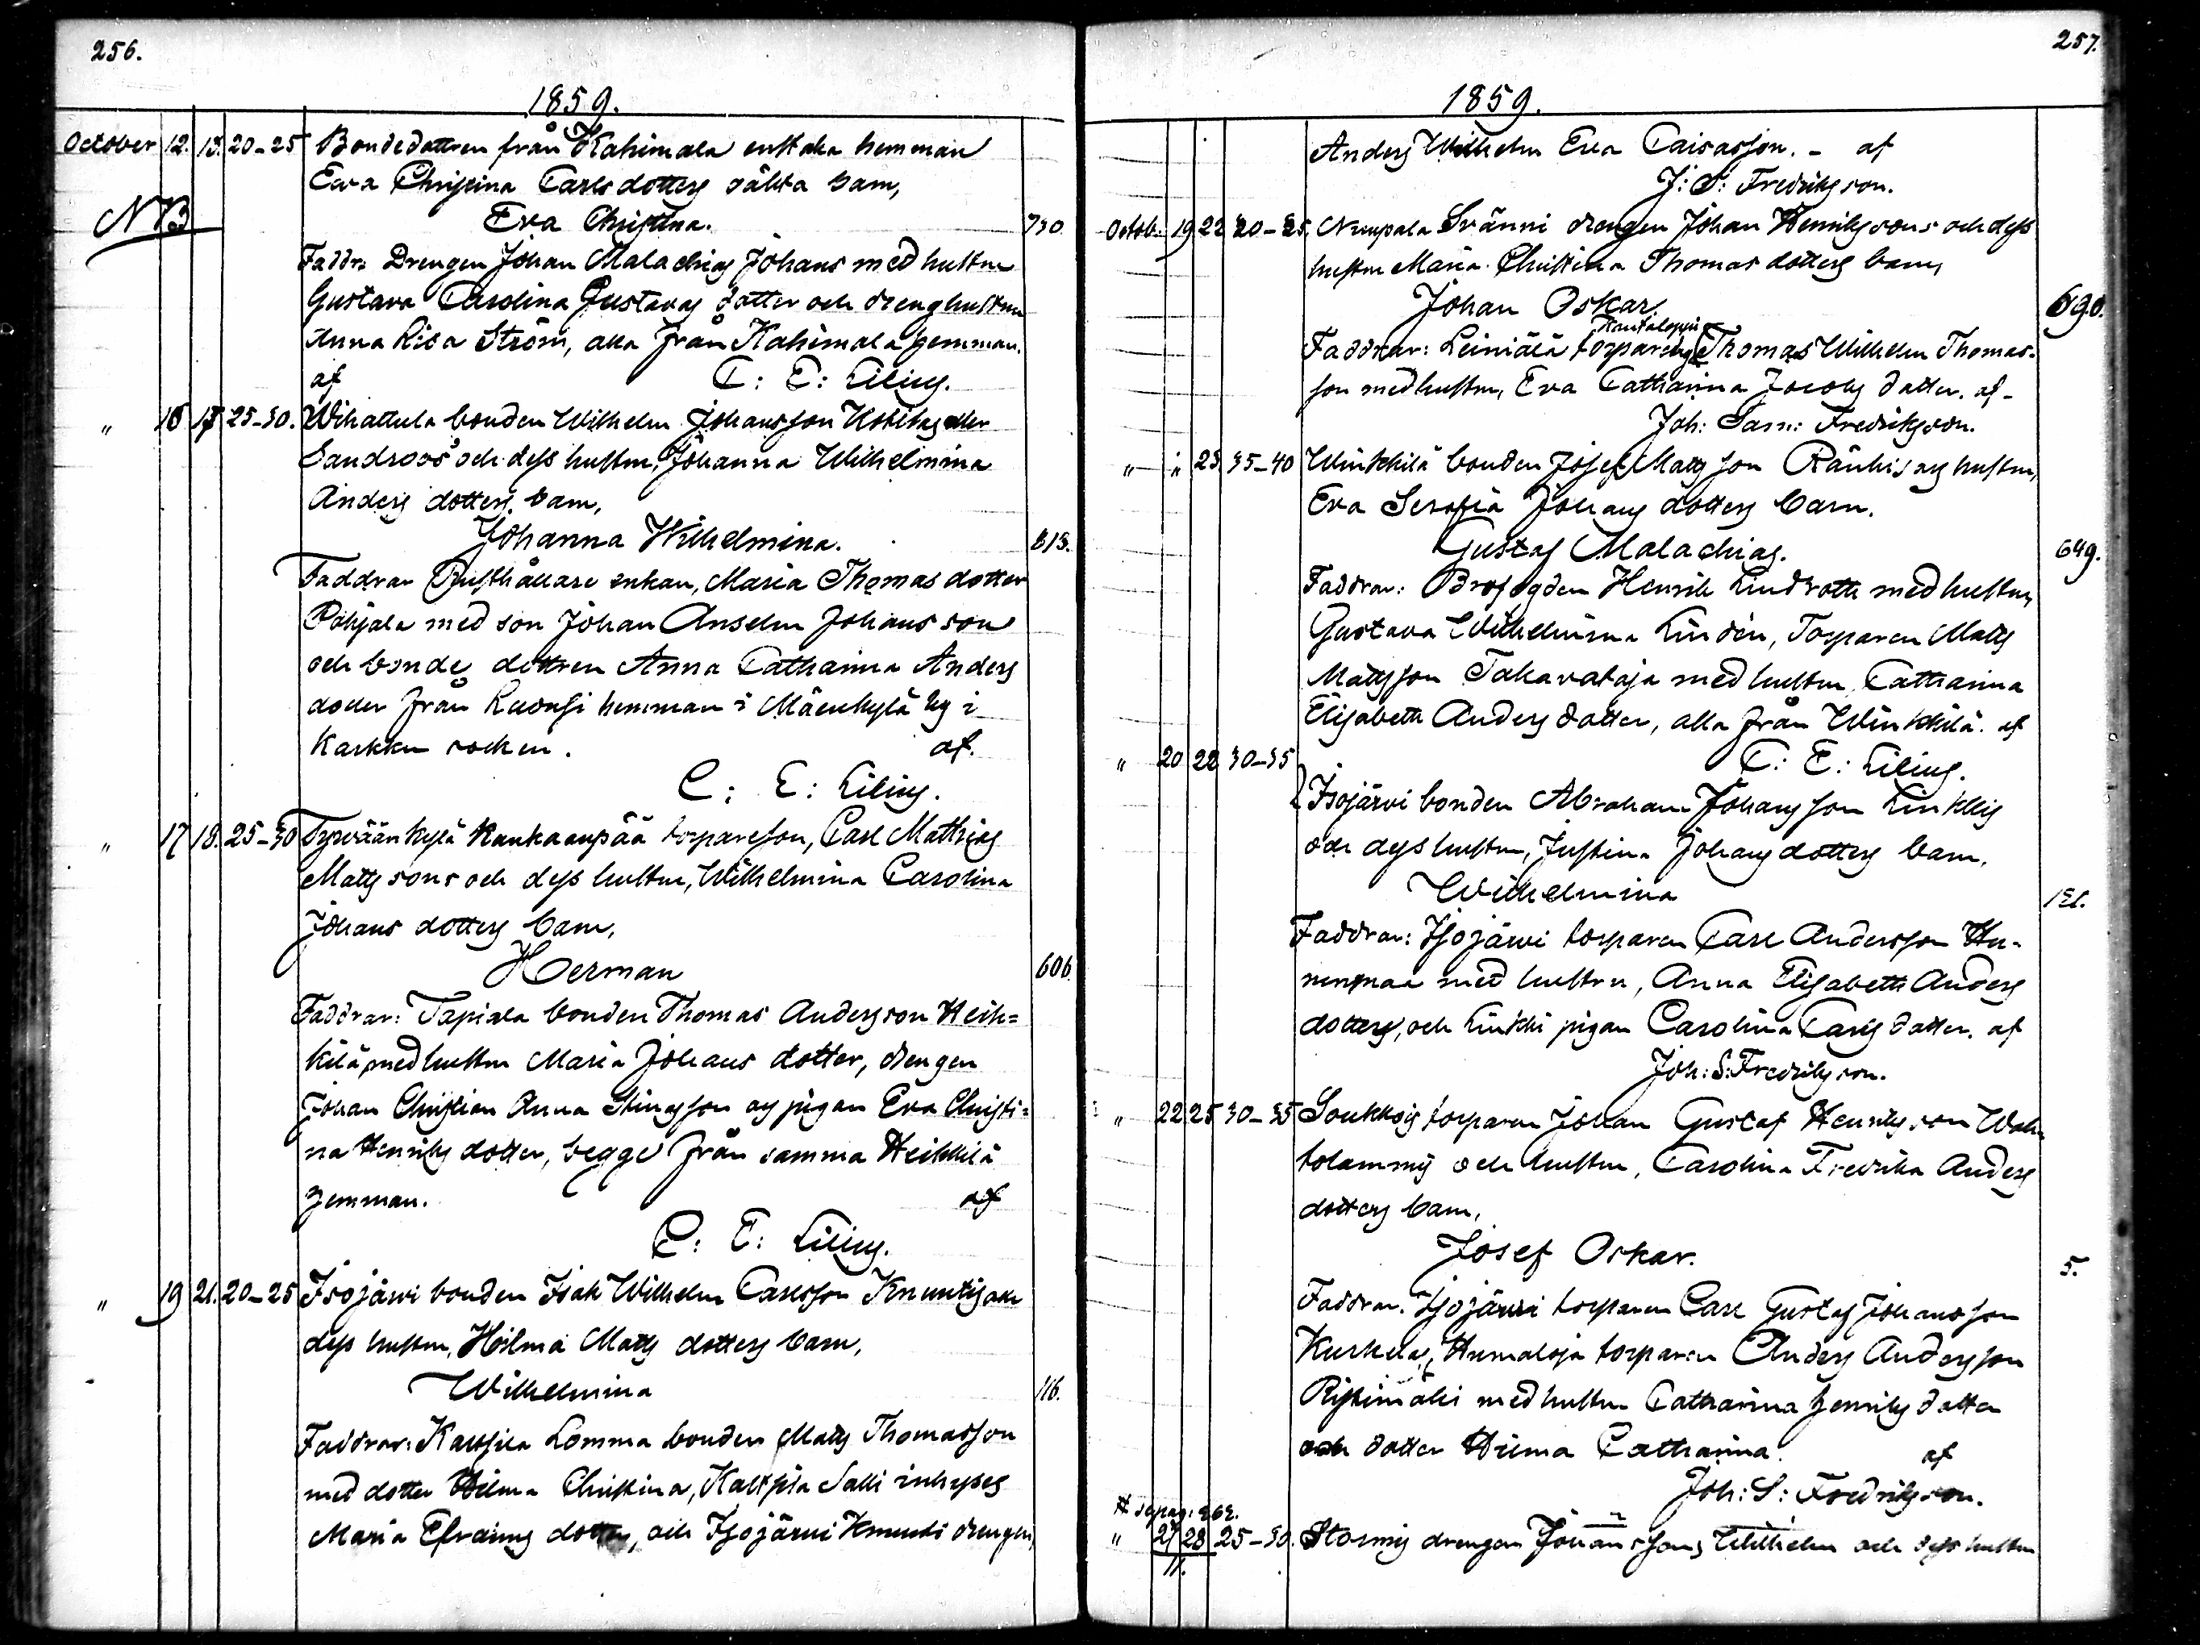 256.
1859.
October 12. 13. 20-25 Bondedottren från Kahimala enstaka hemman
Eva Christina Carlsdotters oäkta barn,
NB
Eva Christina. 730
Faddr: Drengen Johan Malachias Johans med hustru
Gustava Carolina Gustavas dotter och drenghustrun
Anna Lisa Ström, alla från Kahimala hemman.
af C: E: Lilius.
" 16 17 25-30. Wihattula bonden Wilhelm Johansson eller
Sandroos och dess hustru, Johanna Wilhelmina
Anders dotters barn,
Johanna Wilhelmina. 613.
Faddrar Rusthållare enkan, Maria Thomas dotter
Pohjala med son Johan Anselm Johansson
och bonde dottren Anna Catharina Anders
doter från hemman i Mäenkylä by i
Karkku socken. af.
C: E: Lilius.
" 17 18. 25-30 Tyrväänkylä Kankaanpää torpareson, Carl Mathias
Mattssons och dess hustru, Wilhelmina Carolina
Johans dotters barn,
Herman 606
Faddrar: Tapiala bonden Thomas Andersson Heik=
kilä med hustru Maria Johans dotter, drengen
Johan Christian Anna Stinasson och pigan Eva Christi=
na Henriks dotter, begge från samma Heikkilä
hemman. af
C: E: Lilius.
" 19 21. 20-25 Isojärvi bonden Isak Wilhelm Carlsson Knuutis och
dess hustru, Hilma Matts dotters barn,
Wilhelmina 116.
Faddrar: Lomma bonden Matts Thomasson
med dotter Hilma Christina, Salli inhyses
Maria Efraims dotter, och Isojärvi Knuuti drengen,
257.
1859.
Anders Wilhelm Eva Caisasson. - af
J: S: Fredriksson.
Octob: 19 22 20-25. Nuupala Svänni drengen Johan Henrikssons och dess
hustru Maria Christina Thomas dotters barn,
Johan Oskar 690.
Faddrar: Leiniälä torparen Thomas Wilhelm Thomas-
son med hustru, Eva Catharina Jacobs dotter. af -
Joh: Sam: Fredriksson.
" " 23 35-40 Winkkilä bonden Josef Mattsson hustru,
Eva Serafia Johans dotters barn.
Gustaf Malachias. 649.
Faddrar: Brofogden Henrik Lindroth med hustru,
Gustava Wilhelmina Lindén, Torparen Matts
Mattsson Takavataja med hustru Catharina
Elisabeth Anders dotter, alla från Winkkilä. af
C: E: Lilius.
" 20 22 30-35
Isojärvi bonden Abraham Johansson Linkkis
och dess hustru, Justina Johans dotters barn,
Wilhelmina 121.
Faddrar: Isojärvi torparen Carl Andersson Hu-
nenmaa med hustru, Anna Elisabeth Anders
dotters, och Linkki pigan Carolina Carls dotter. af
Joh: S: Fredriksson.
" 22 25 30-35 Soukkois torparen Johan Gustaf Henriksson
och hustru, Carolina Fredrika Anders
dotters barn,
Josef Oskar. 5.
Faddrar. Isojärvi torparen Carl Gustaf Johansson
Kurkelas, Humaloja torparen Anders Andersson
Ristimäki med hustru Catharina Henriks dotter
och dotter Hilma Catharina. af
Joh: S: Fredriksson.
" 27 28 25-30. Stormis drengen Johanssons Wilhelm och dess hustru
11.